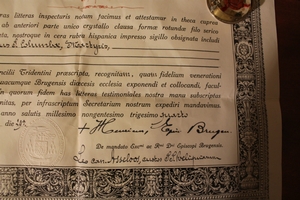 has litteras inspecturis notum facimus et attestamur in theca cuprea
ab anteriori parte unico crystallo clausa formae rotundae filo serico
nostroque in cera rubra hispanica impresso sigillo obsignata includi
Martyris,
Concilii Tridentini praescripta, recognitam, quam fidelium venerationi
Brugensis dioecesis ecclesiis exponendi et collocandi, facul-
In quorum fidem has litteras testimoniales nostra manu subscriptas
munitas, per infrascriptum Secretarium nostrum expediri mandavimus.
anno salutis millesimo nongentesimo trigesimo quarto
die
+ Henricus, Epis Brugen.
De mandato Exc.mi ac R.mi Dni Episcopi Brugensis.
Leo can. Asseloos, custos SS. Reliquiarum